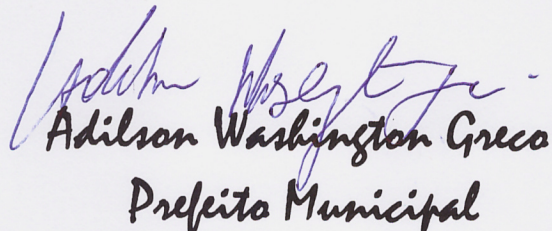 Adilson Washington Greco
Prefeito Municipal